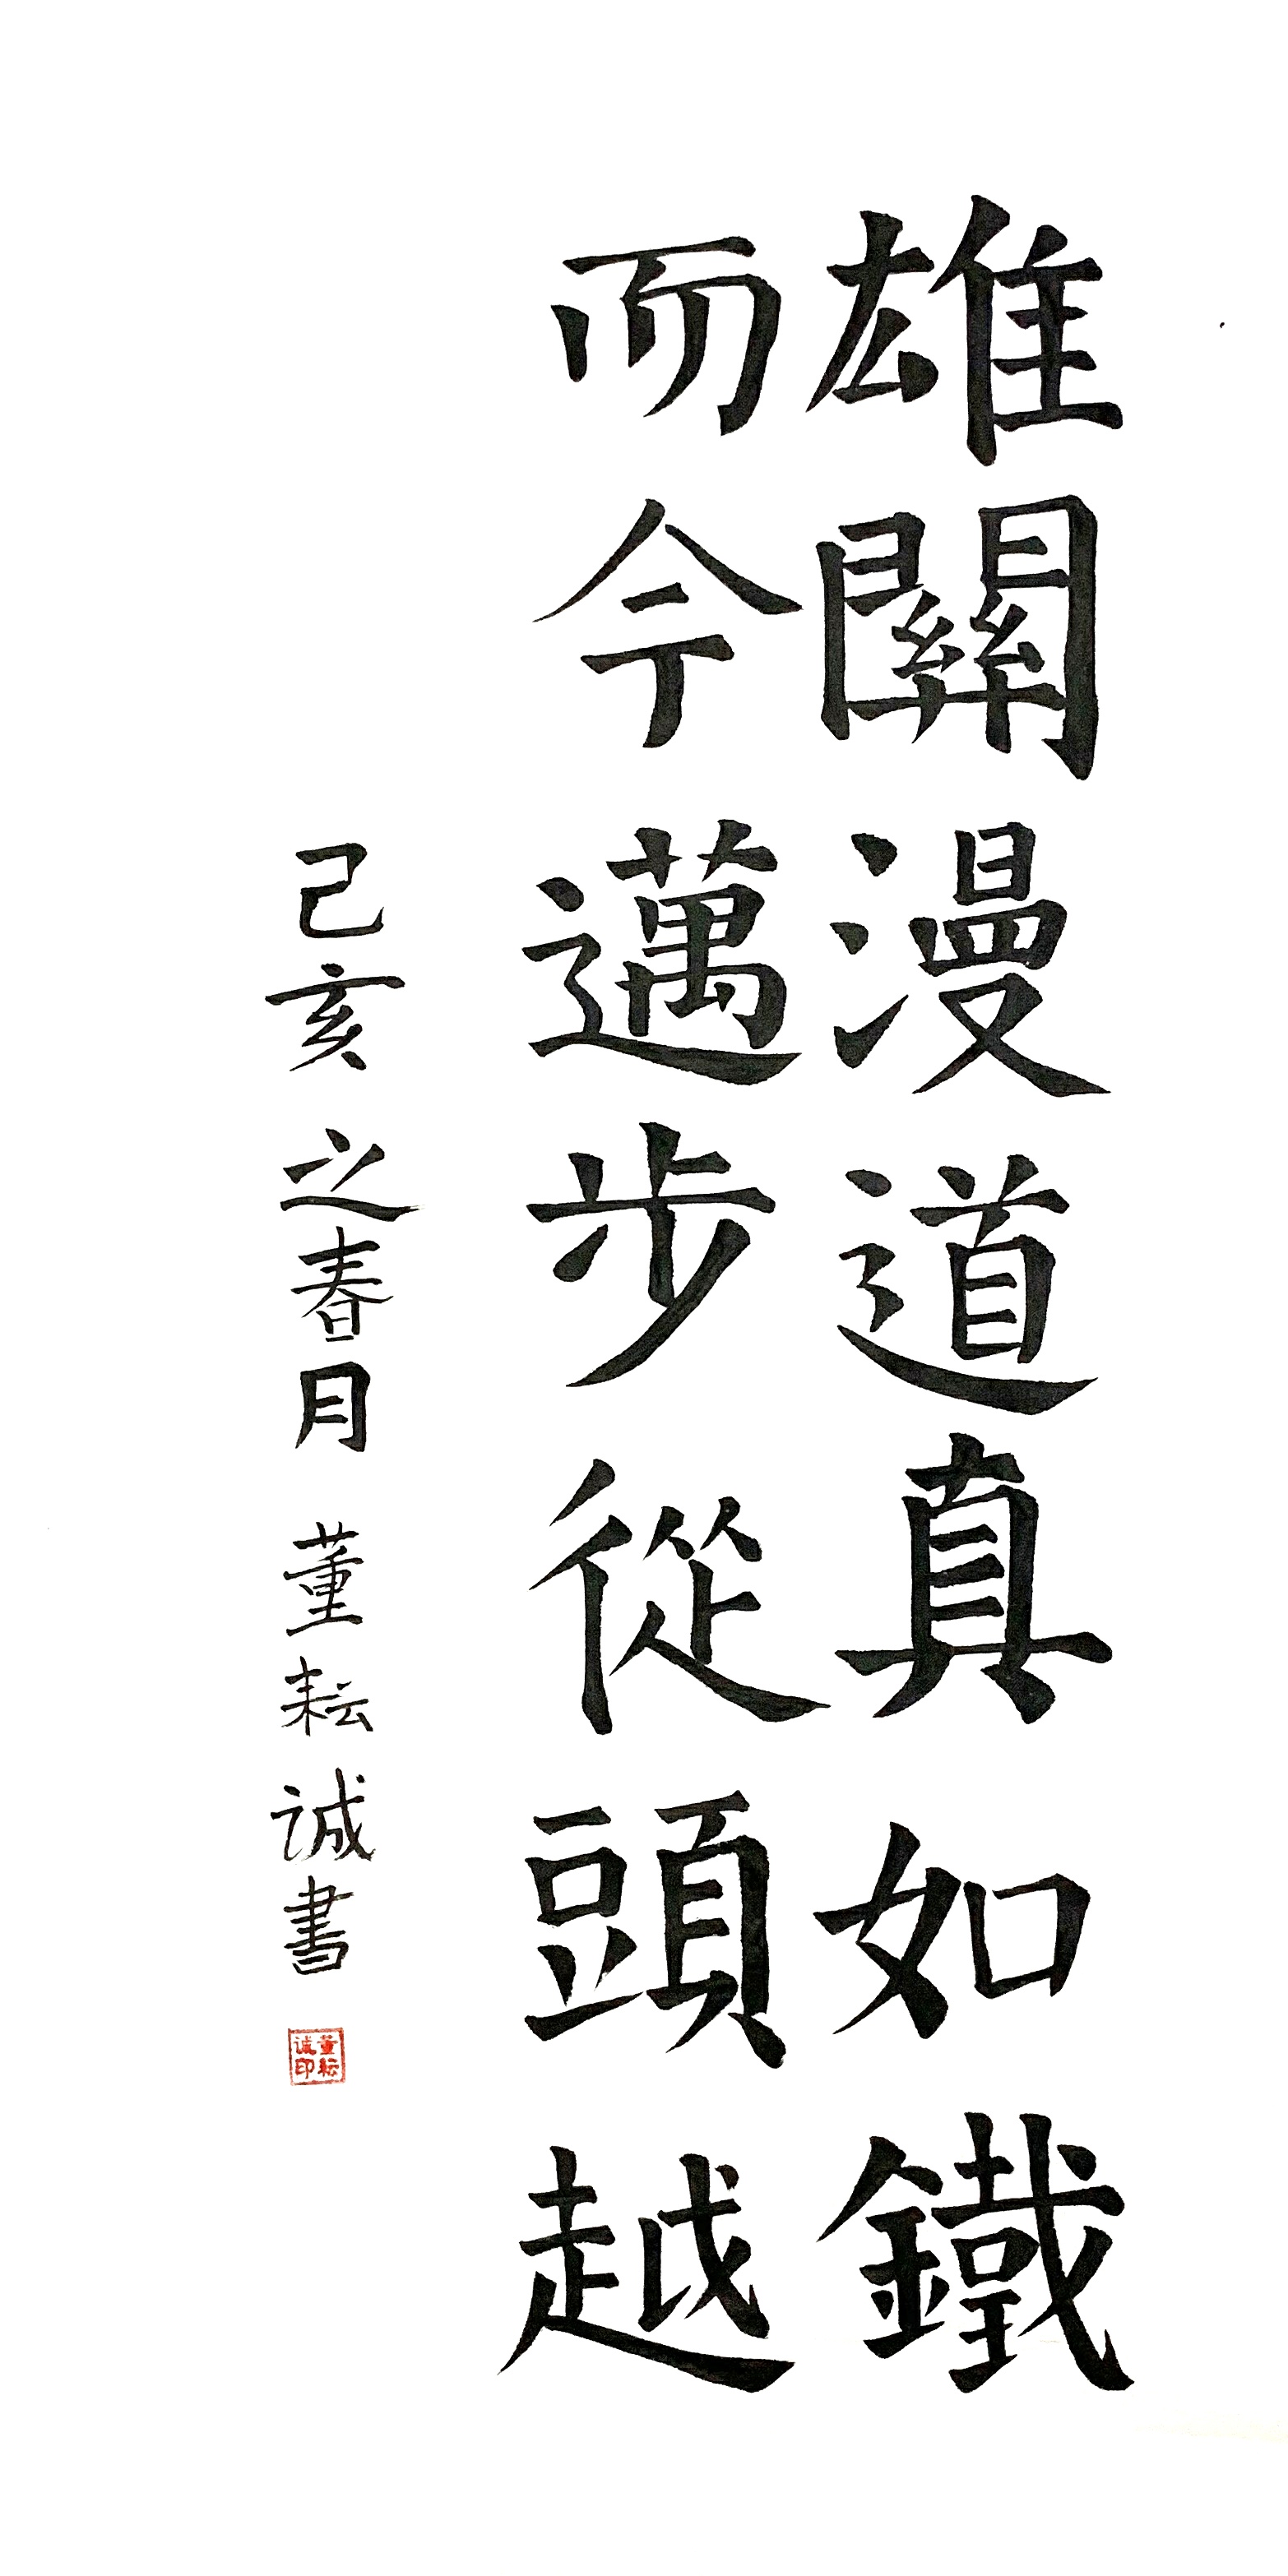 雄關漫道真如鐵
而今邁步從頭越
己亥之春月 董耘誠書
董耘
誠印